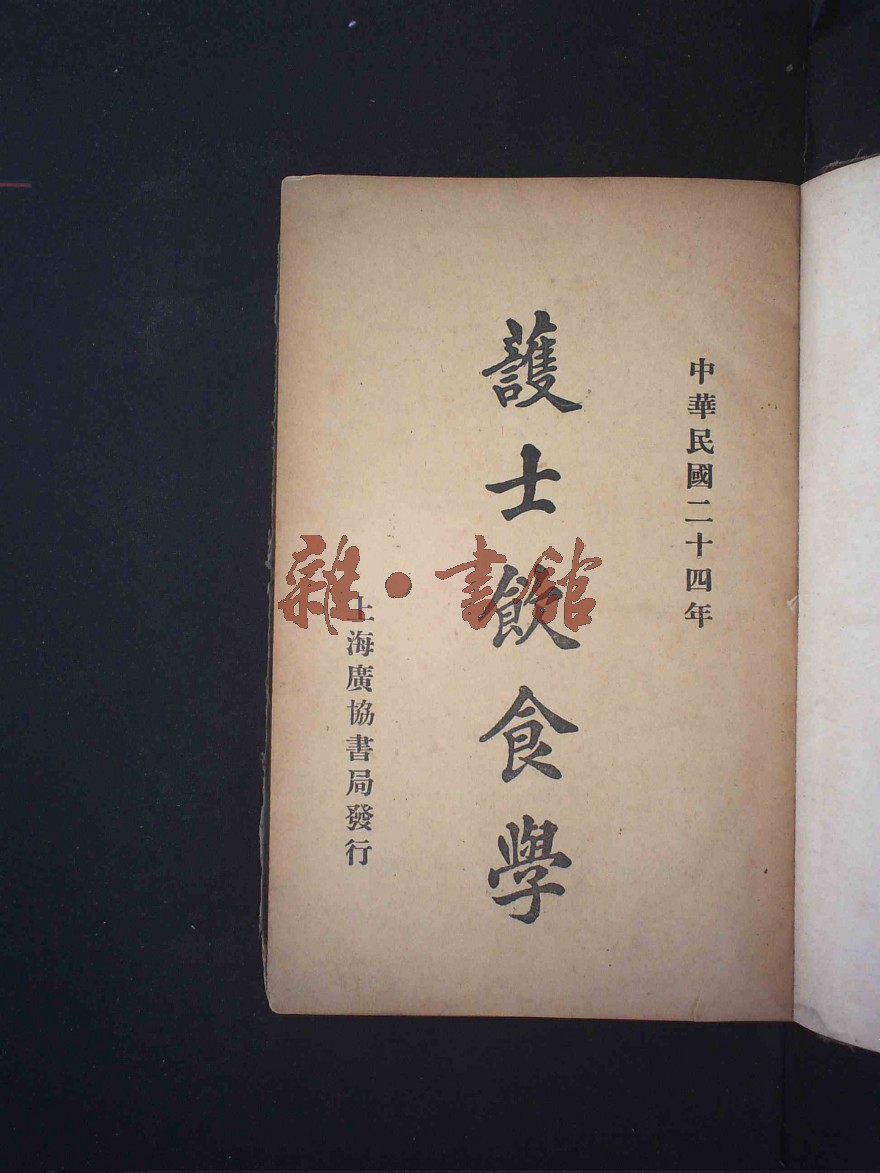 中華民國二十四年
護士飲食學
上海廣協書局發行
雜·書館